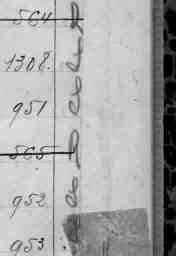 564
1308.
951
565
952
953